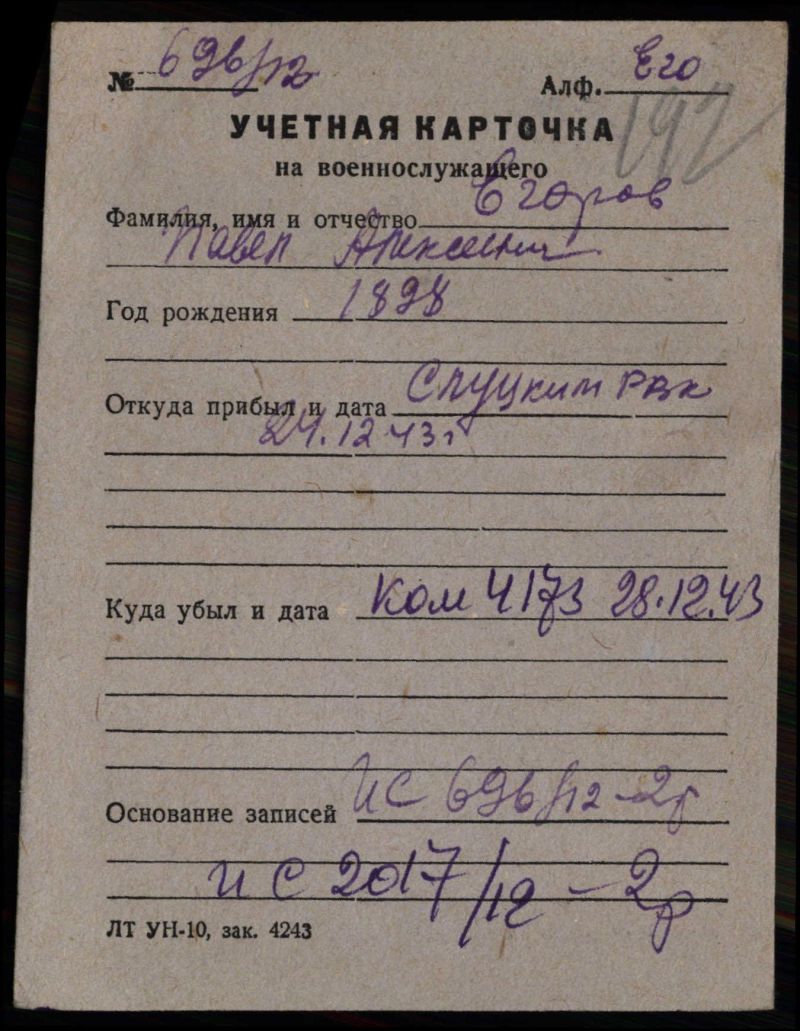 № 696/12 Алф. Его
192
УЧЕТНАЯ КАРТОЧКА
на военнослужащего
Фамилия, имя и отчество Егоров
Павел Алексеевич
Год рождения 1898
Откуда прибыл и дата Слуцким РВк
24.12 43г
Куда убыл и дата Ком 4173 28.12.43
Основание записей ИС 696/12 - 2р
ИС 2017/12 - 2р
ЛТ УН-10, зак. 4243